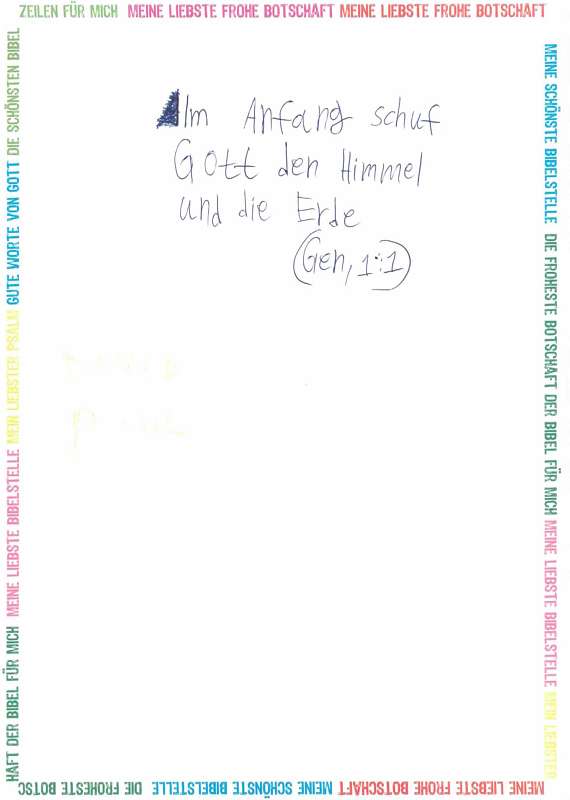 ZEILEN FÜR MICH MEINE LIEBSTE FROHE BOTSCHAFT MEINE LIEBSTE FROHE BOTSCHAFT
Im Anfang schuf
Gott den Himmel
und die Erde
(Gen, 1:1)
MEINE SCHÖNSTE BIBELSTELLE DIE FROHESTE BOTSCHAFT DER BIBEL FÜR MICH MEINE LIEBSTE BIBELSTELLE MEIN LIEBSTER
MEINE LIEBSTE FROHE BOTSCHAFT MEINE SCHÖNSTE BIBELSTELLE DIE FROHESTE BOTSC
HAFT DER BIBEL FÜR MICH MEINE LIEBSTE BIBELSTELLE MEIN LIEBSTER PSALM GUTE WORTE VON GOTT DIE SCHÖNSTEN BIBEL